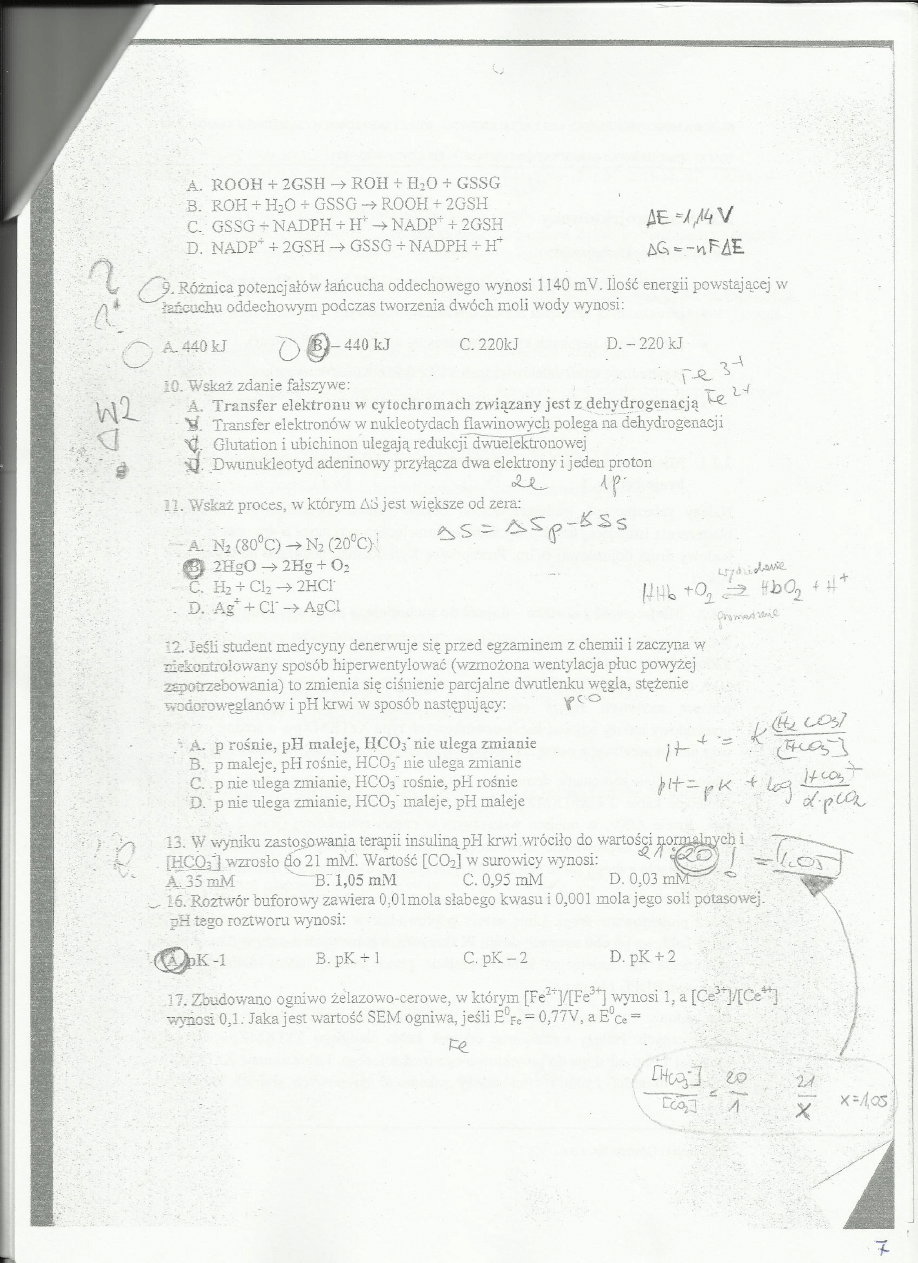 A. ROOH + 2GSH → ROH + H₂O + GSSG
B. ROH + H₂O + GSSG → ROOH + 2GSH
C. GSSG + NADPH + H⁺ → NADP⁺ + 2GSH
D. NADP⁺ + 2GSH → GSSG + NADPH + H⁺
ΔE = 1,14 V
ΔG = -nFΔE
9. Różnica potencjałów łańcucha oddechowego wynosi 1140 mV. Ilość energii powstającej w
łańcuchu oddechowym podczas tworzenia dwóch moli wody wynosi:
A. 440 kJ B. – 440 kJ C. 220kJ D. – 220 kJ
10. Wskaż zdanie fałszywe:
Fe 3+
Fe 2+
A. Transfer elektronu w cytochromach związany jest z dehydrogenacją
B. Transfer elektronów w nukleotydach flawinowych polega na dehydrogenacji
C. Glutation i ubichinon ulegają redukcji dwuelektronowej
D. Dwunukleotyd adeninowy przyłącza dwa elektrony i jeden proton
W2
2e 1p
11. Wskaż proces, w którym ΔS jest większe od zera:
A. N₂ (80⁰C) → N₂ (20⁰C)
B. 2HgO → 2Hg + O₂
C. H₂ + Cl₂ → 2HCl
D. Ag⁺ + Cl⁻ → AgCl
HHb + O₂ ⇄ HbO₂ + H⁺
12. Jeśli student medycyny denerwuje się przed egzaminem z chemii i zaczyna w
niekontrolowany sposób hiperwentylować (wzmożona wentylacja płuc powyżej
zapotrzebowania) to zmienia się ciśnienie parcjalne dwutlenku węgla, stężenie
wodorowęglanów i pH krwi w sposób następujący:
pCO
A. p rośnie, pH maleje, HCO₃⁻ nie ulega zmianie
B. p maleje, pH rośnie, HCO₃⁻ nie ulega zmianie
C. p nie ulega zmianie, HCO₃⁻ rośnie, pH rośnie
D. p nie ulega zmianie, HCO₃⁻ maleje, pH maleje
13. W wyniku zastosowania terapii insuliną pH krwi wróciło do wartości normalnych i
[HCO₃⁻] wzrosło do 21 mM. Wartość [CO₂] w surowicy wynosi:
21:20 ! = 1,05
A. 35 mM B. 1,05 mM C. 0,95 mM D. 0,03 mM
16. Roztwór buforowy zawiera 0,01mola słabego kwasu i 0,001 mola jego soli potasowej.
pH tego roztworu wynosi:
A. pK -1 B. pK + 1 C. pK – 2 D. pK + 2
17. Zbudowano ogniwo żelazowo-cerowe, w którym [Fe²⁺]/[Fe³⁺] wynosi 1, a [Ce³⁺]/[Ce⁴⁺]
wynosi 0,1. Jaka jest wartość SEM ogniwa, jeśli E⁰Fe = 0,77V, a E⁰Ce =
Fe
[HCO₃⁻]/[CO₂] = 20/1 21/X x=1,05
7